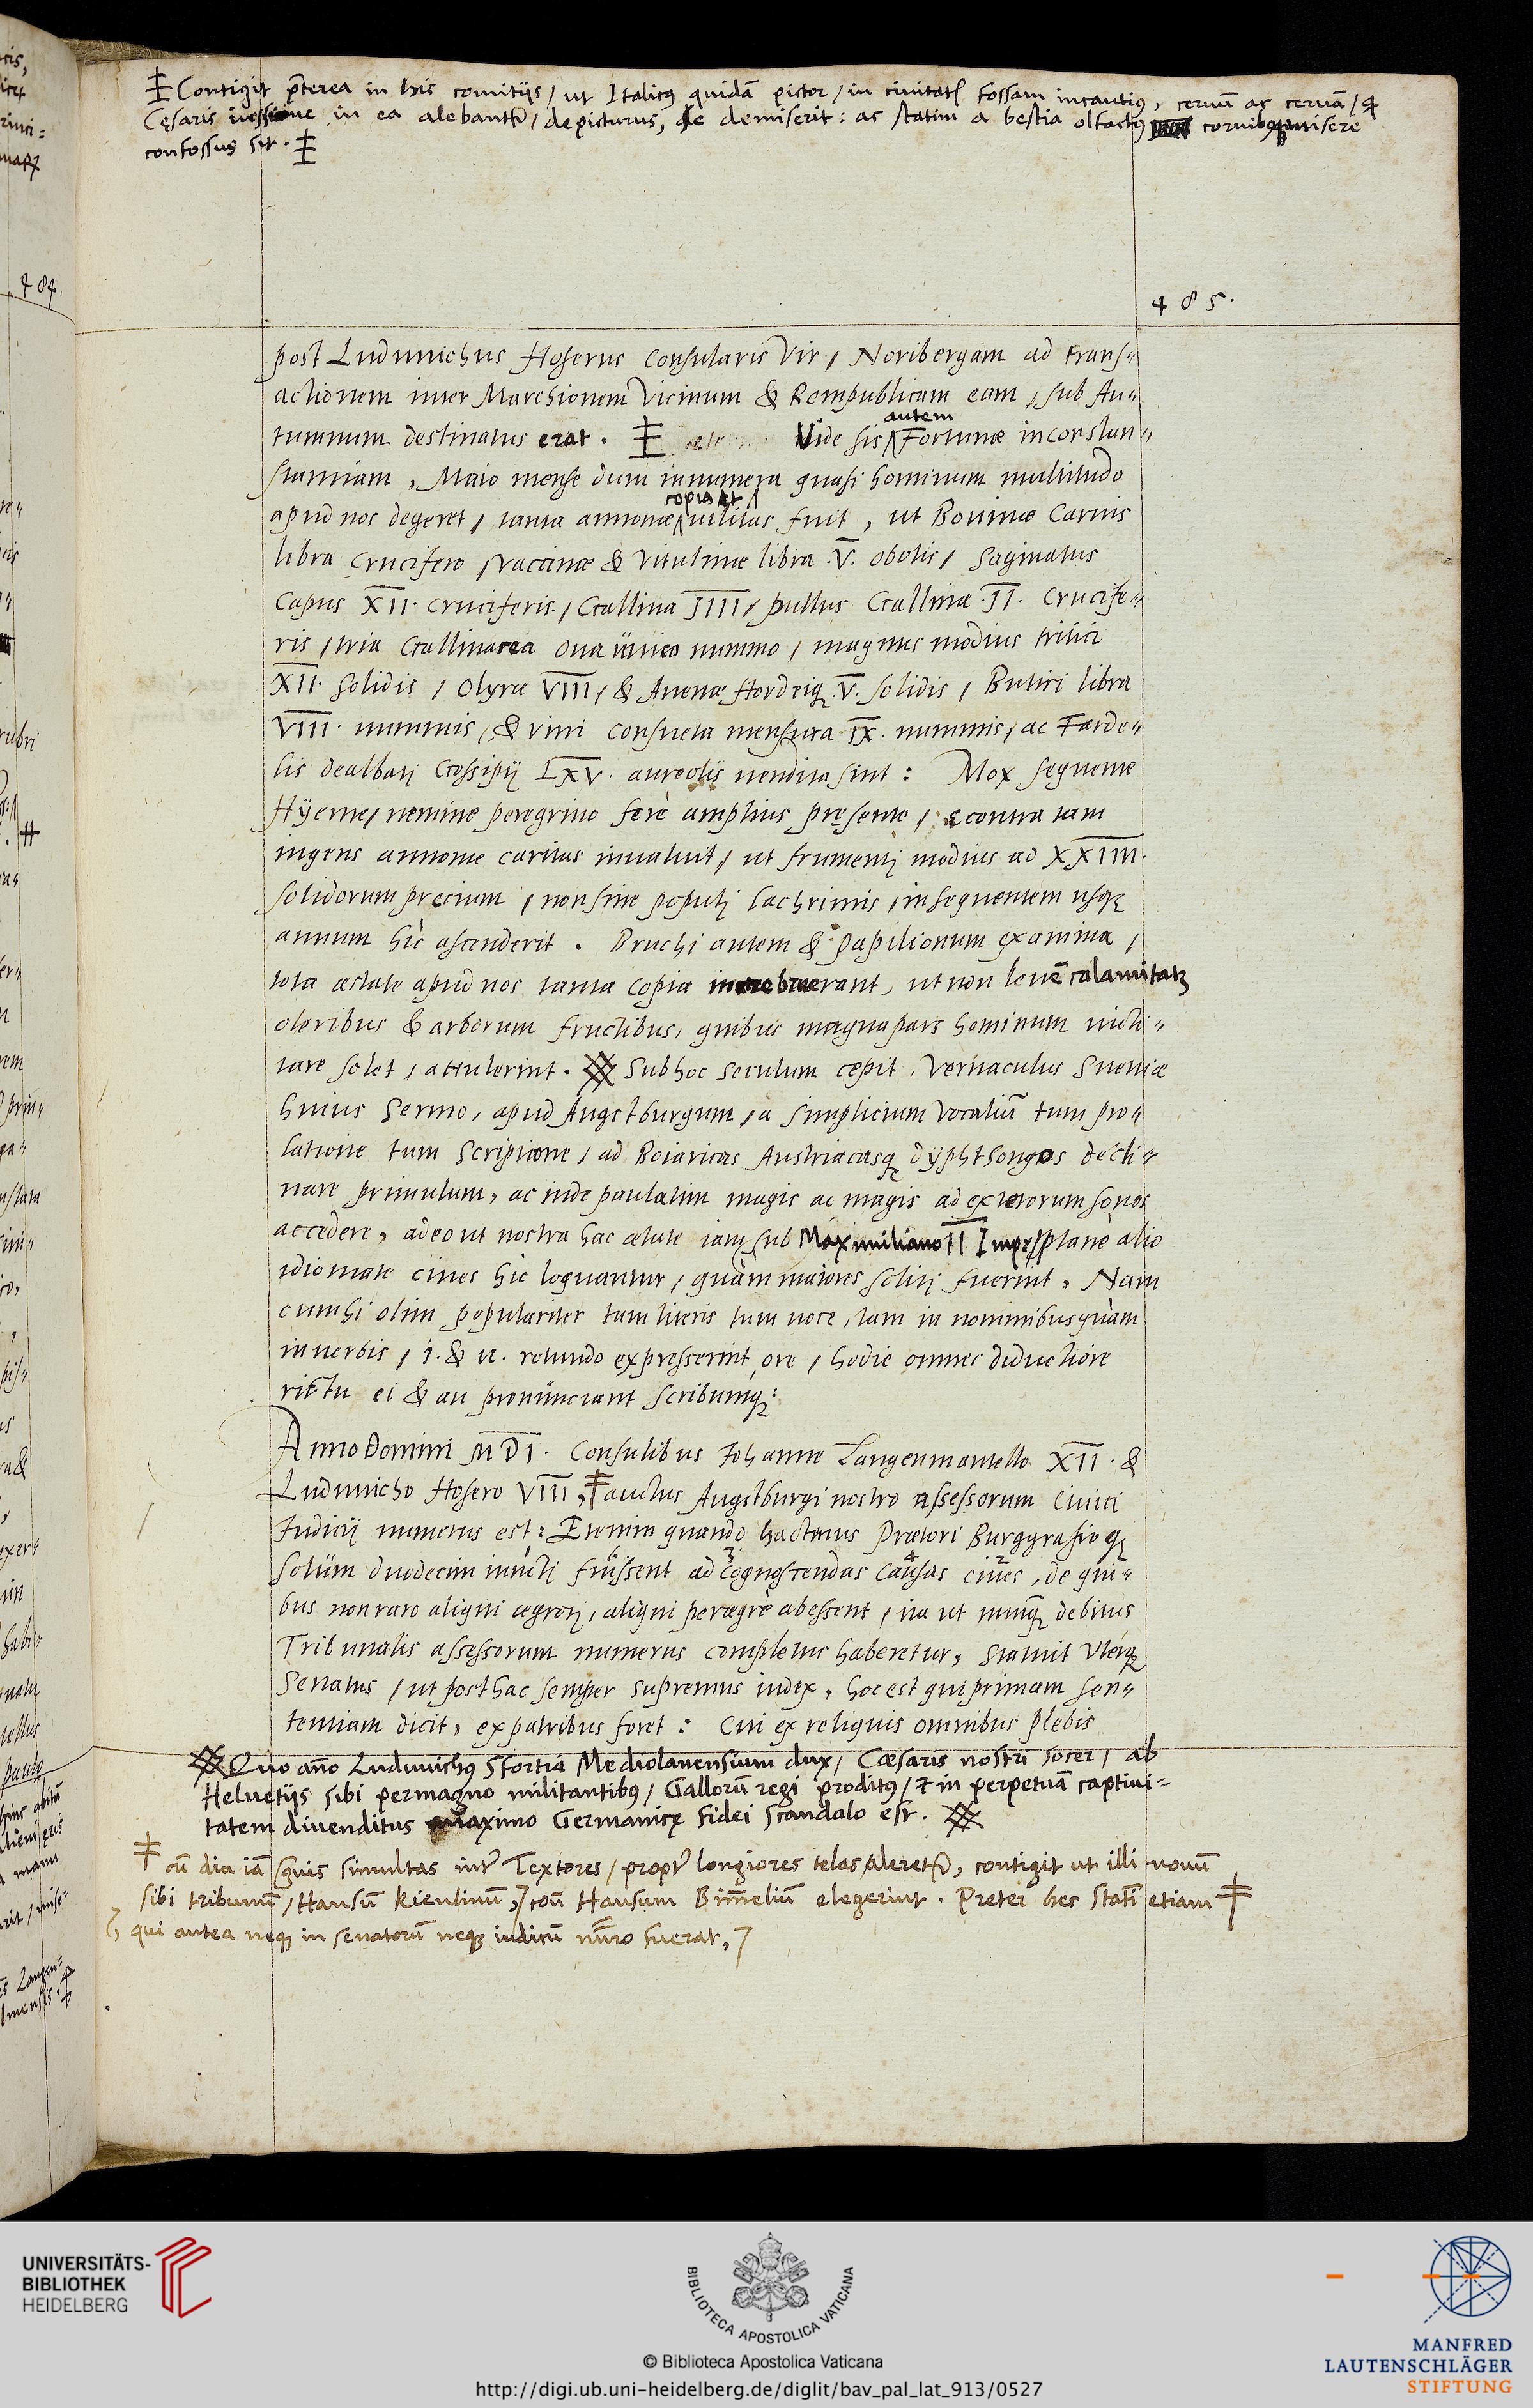 ‡ Contigit p̃terea in his comitijs / ut Italicꝰ quidã pictor / in ciuitatẜ fossam incautiꝰ, ceruũ ac ceruã / q̃
Cęsaris iussione in ea alebant᷑ / depicturus, se demiserit: ac statim a bestia olfactꝰ cornibꝰ misere
confossus sit. ‡
485.
post Luduuichus Hoserus Consularis Vir / Noribergam ad trans=
actionem inter Marchionem Vicinum & Rempublicam eam, sub Au=
tumnum destinatus erat. ‡ Vide sis autem Fortunæ inconstan=
stantiam, Maio mense dum innumera quasi hominum multitudo
apud nos degeret, tanta annonæ copia et uilitas fuit, ut Bouinæ Carnis
libra Crucifero, Vaccinæ & Vitulinæ libra .V. obolis, Saginatus
Capus XII. Cruciferis, Gallina IIII, pullus Gallinæ .II. Crucife=
ris, tria Gallinacea Oua unico nummo, magnus modius tritici
XII. Solidis, Olyræ VIII, & Auenæ Hordeiqꝫ .V. solidis, Butiri libra
VIII. nummis, & vini consueta mensura IX. nummis, ac Farde=
lis dealbatj Gossipij LXV. aureolis uendita sint: Mox sequente
Hyeme, nemine peregrino ferè amplius pręsente, econtra tam
ingens annonæ caritas inualuit, ut frumentj modius ad XXIIII.
solidorum precium, non sine populj lachrimis, in sequentem usqꝫ
annum hîc ascenderit. Bruchi autem & Papilionum examina,
tota æstate apud nos tanta copia increbruerant, ut non leuẽ calamitatẽ
oleribus & arborum fructibus, quibus magna pars hominum uicti=
tare solet, attulerint. Sub hoc seculum cępit Vernaculus Sueuiæ
huius Sermo, apud Augstburgum, a simplicium Vocaliũ tum pro=
latione tum Scriptione, ad Boiaricas Austriacasqꝫ dyphtongos decli=
nare primulum, ac inde paulatim magis ac magis ad exterorum sonos
accedere, adeo ut nostra hac ætate iam sub Maximiliano II Imp: planè alio
idiomate ciues hic loquantur, quàm maiores solitj fuerint, Nam
cum hi olim populariter tum literis tum uoce, tam in nominibus quàm
in uerbis, i. & u. rotundo expresserint ore, hodie omnes diductiore
rictu ei & au pronunciant scribuntqꝫ:
Anno Domini MDI. Consulibus Iohanne Langenmantello XII. &
Luduuicho Hosero VIII, ‡ auctus Augstburgi nostro assessorum Ciuici
Iudicij numerus est: Etenim quando hactenus Prætori Burggrafioqꝫ
solùm duodecim iunctj fuissent ad cognoscendas causas ciues, de qui=
bus non raro aliqui ægrotj, aliqui peregrè abessent, ita ut nunqꝫ debitus
Tribunalis assessorum numerus completus haberetur, Statuit Uterqꝫ
Senatus, ut posthac semper supremus iudex, hoc est qui primam sen=
tentiam dicit, ex patribus foret: Cui ex reliquis omnibus plebis
Quo año Luduuichꝰ Sfortia Mediolanensium dux / Cæsaris nostri socer / ab
Heluetijs sibi permagno militantibꝰ / Gallorũ regi proditꝰ / & in perpetuã captiui=
tatem diuenditus maximo Germanicę fidei scandalo est.
‡ cũ diu iã grauis simultas int᷑ Textores / propt᷑ longiores telas aleret᷑, contigit ut illi nouũ
sibi tribunũ / Hansũ Kienlinũ, con̄ Hansum Bim̃eliũ elegerint. Preter hec statĩ etiam ‡
, qui antea neqꝫ in senatorũ neqꝫ iudicũ nũero fuerat,
UNIVERSITÄTS-
BIBLIOTHEK
HEIDELBERG
BIBLIOTECA APOSTOLICA VATICANA
© Biblioteca Apostolica Vaticana
http://digi.ub.uni-heidelberg.de/diglit/bav_pal_lat_913/0527
MANFRED
LAUTENSCHLÄGER
STIFTUNG